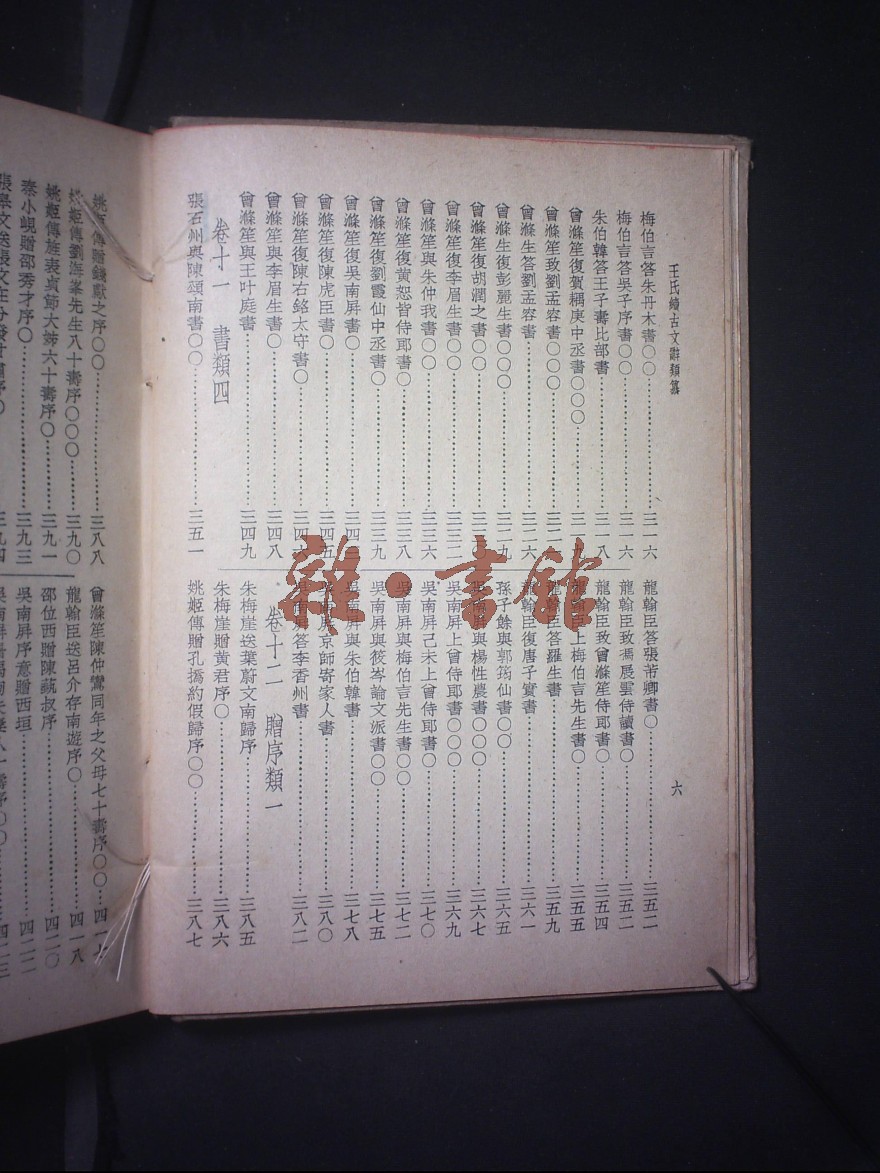 王氏續古文辭類纂
六
梅伯言答朱丹木書〇〇……三一六
梅伯言答吳子序書〇〇……三一六
朱伯韓答王子壽比部書……三一八
曾滌笙復賀耦庚中丞書〇〇〇……三一九
曾滌笙致劉孟容書〇〇〇
曾滌生答劉孟容書……三二六
曾滌生復彭麗生書〇〇……三二九
曾滌笙復胡潤之書〇〇……三三〇
曾滌笙復李眉生書〇〇……三三二
曾滌笙與朱仲我書〇〇……三三六
曾滌笙復黃恕皆侍郎書〇……三三八
曾滌笙復劉霞仙中丞書〇……三三九
曾滌笙復吳南屛書〇……三四三
曾滌笙復陳虎臣書〇……三四五
曾滌笙復陳右銘太守書〇……三四六
曾滌笙與李眉生書〇……三四八
曾滌笙與王叶庭書……三四九
卷十一 書類四
張石州與陳頌南書〇〇……三五一
龍翰臣答張芾卿書〇……三五二
龍翰臣致馮展雲侍讀書〇……三五二
龍翰臣致曾滌笙侍郎書〇……三五四
龍翰臣上梅伯言先生書〇……三五五
龍翰臣答羅生書……三五九
龍翰臣復唐子實書……三六一
孫餘與郭筠仙書〇……三六五
吳南屛與楊性農書〇〇〇……三六七
吳南屛上曾侍郎書〇〇〇……三六九
吳南屛己未上曾侍郎書……三七〇
吳南屛與梅伯言先生書〇……三七二
吳南屛與筱岑論文派書〇〇……三七五
吳南屛與朱伯韓書……三七八
京師寄家人書……三八〇
吳南屛答李香州書……三八二
卷十二 贈序類一
朱梅崖送葉蔚文南歸序……三八五
朱梅崖贈黃君序〇……三八六
姚姬傳贈孔撝約假歸序〇〇……三八七
姚姬傳贈錢獻之序〇〇……三八八
姚姬傳劉海峯先生八十壽序〇〇〇……三九〇
姚姬傳旌表貞節大姊六十壽序〇……三九一
秦小峴贈邵秀才序〇……三九三
三九四
曾滌笙陳仲鸞同年之父母七十壽序〇〇……四一七
龍翰臣送呂介存南遊序〇……四一八
邵位西贈陳蓺叔序……四二〇
吳南屛序意贈西垣……四二二
四二三
雜·書館